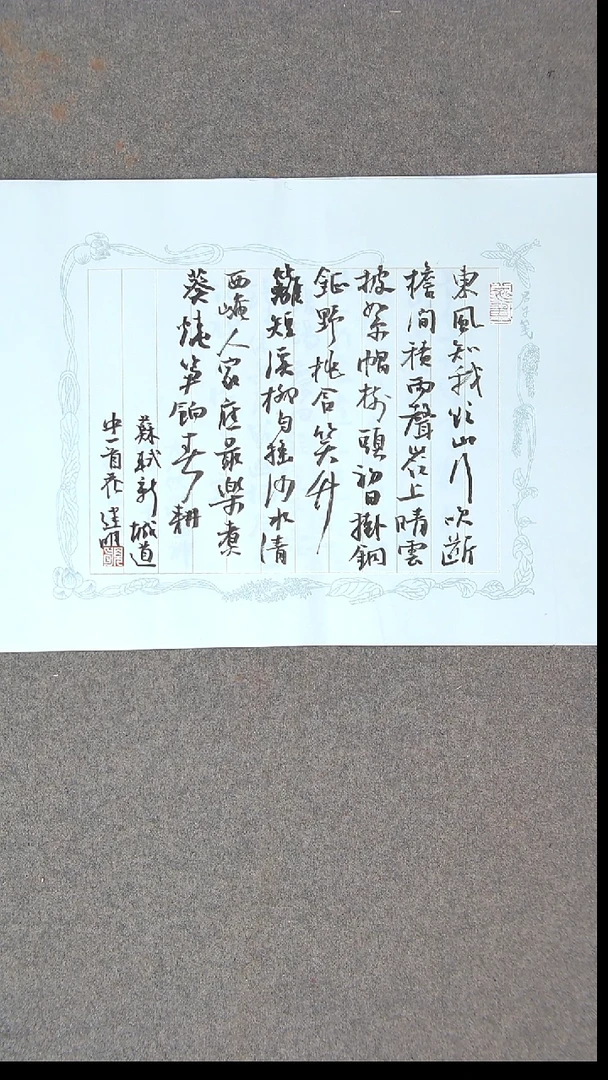 東風知我欲山行吹斷
檐間積雨聲岺上晴雲
披絮帽樹頭初日掛銅
鉦野桃含笑竹
籬短溪柳自搖沙水清
西崦人家應最樂煮
葵燒笋餉春耕
蘇軾新城道
中一首 建明